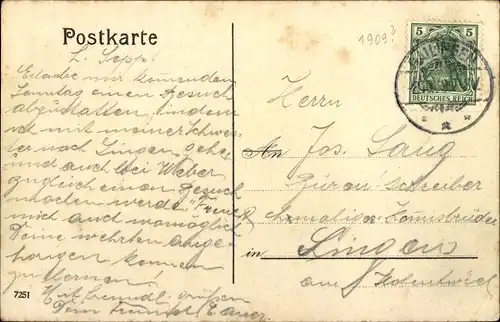 Postkarte
L. Sepp!
Erlaube mir kommenden
Sonntag einen Besuch
abzustatten, indem
ich mit meiner Schwes-
ter nach Singen gehe,
und auch bei Weber
zugleich einen Besuch
machen werde. Freue
mich auch womöglich
Deine wehrten ange-
hörigen kennen
zu lernen!
Mit freundl. grüßen
Dein Freund
7251
1909?
5 5
DEUTSCHES REICH
Herrn
An Jos. Lang
schreiber
& ehemaliger
in Singen
am Hohentwiel